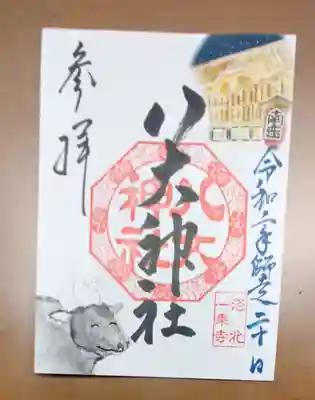 参拝
八大神社
八大
神社
令和二年師走二十日
洛北
一乗寺